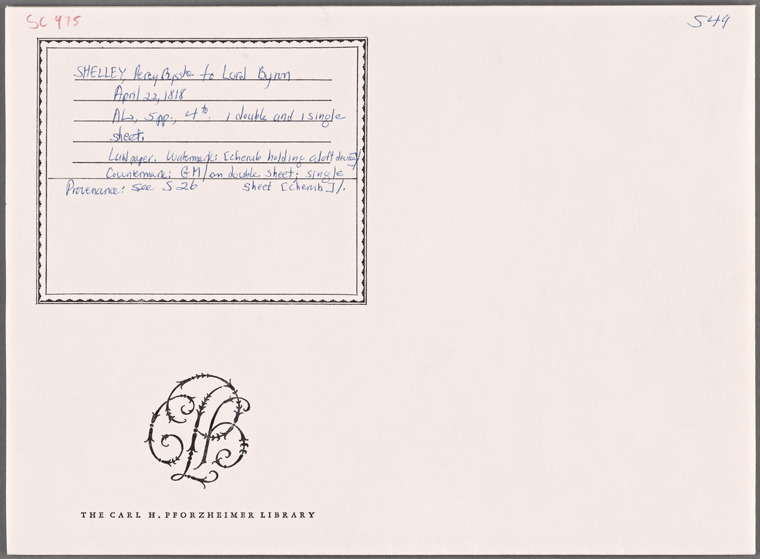 SC 475
S49
SHELLEY, Percy Bysshe to Lord Byron
April 22, 1818
ALs, 5 pp., 4to, 1 double and 1 single
sheet.
Laid paper. Watermark: [cherub holding aloft
Countermark: GM/on double sheet; single
Provenance: see S 26 sheet [cherub]/.
THE CARL H. PFORZHEIMER LIBRARY